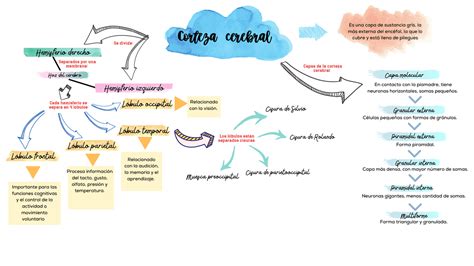 Corteza cerebral
Es una capa de sustancia gris, la
más externa del encéfal, la que lo
cubre y está llena de pliegues
Se divide
Hemisferio derecho
Separados por una
membrana
Haz del cerebro
Hemisferio izquierdo
Cada hemisferio se
separa en 4 lóbulos
Lóbulo occipital
Relacionado
con la visión.
Lóbulo temporal
Relacionado
con la audición,
la memoria y el
aprendizaje.
Lóbulo frontal
Importante para las
funciones cognitivas
y el control de la
actividad o
movimiento
voluntario
Lóbulo parietal
Procesa información
del tacto, gusto,
olfato, presión y
temperatura.
Los lóbulos están
separados cisuras
Cisura de Silvio
Cisura de Rolando
Cisura de parietooccipital
Muesca preoccipital
Capas de la corteza
cerebral
Capa molecular
En contacto con la piamadre, tiene
neuronas horizontales, somas pequeños.
Granular externa
Células pequeñas con formas de gránulos.
Piramidal externa
Forma piramidal.
Granular interna
Capa más densa, con mayor número de somas.
Piramidal interna
Neuronas gigantes, menos cantidad de somas.
Multiforme
Forma triangular y ramificada.